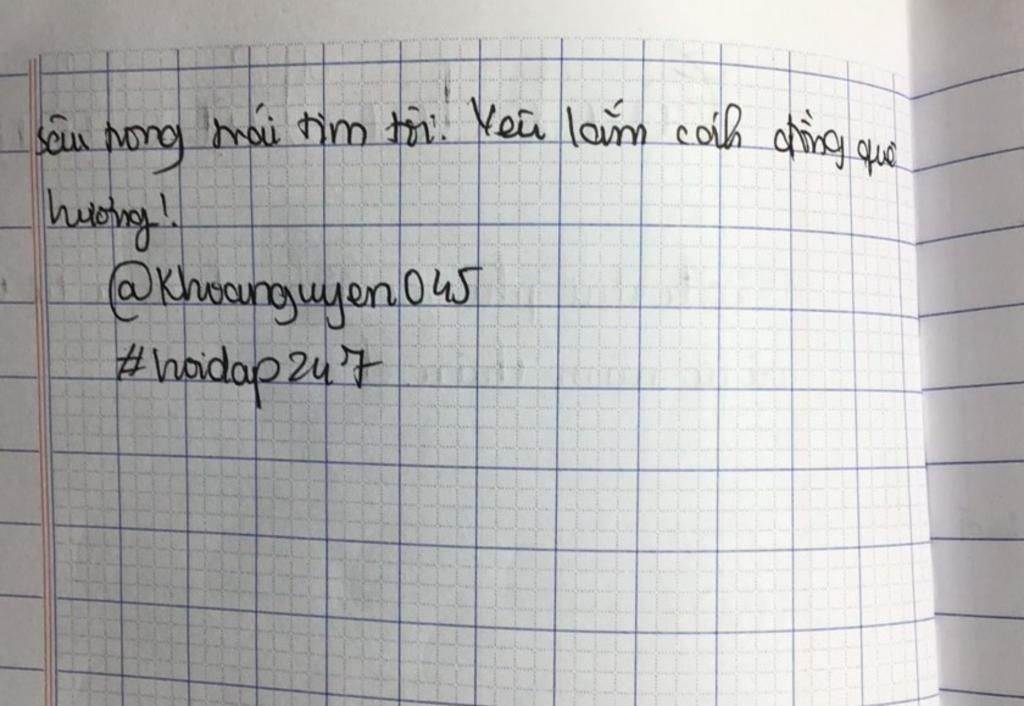 sâu trong trái tim tôi! Yêu lắm cánh đồng quê
hương!
@Khoanguyen045
#hoidap247